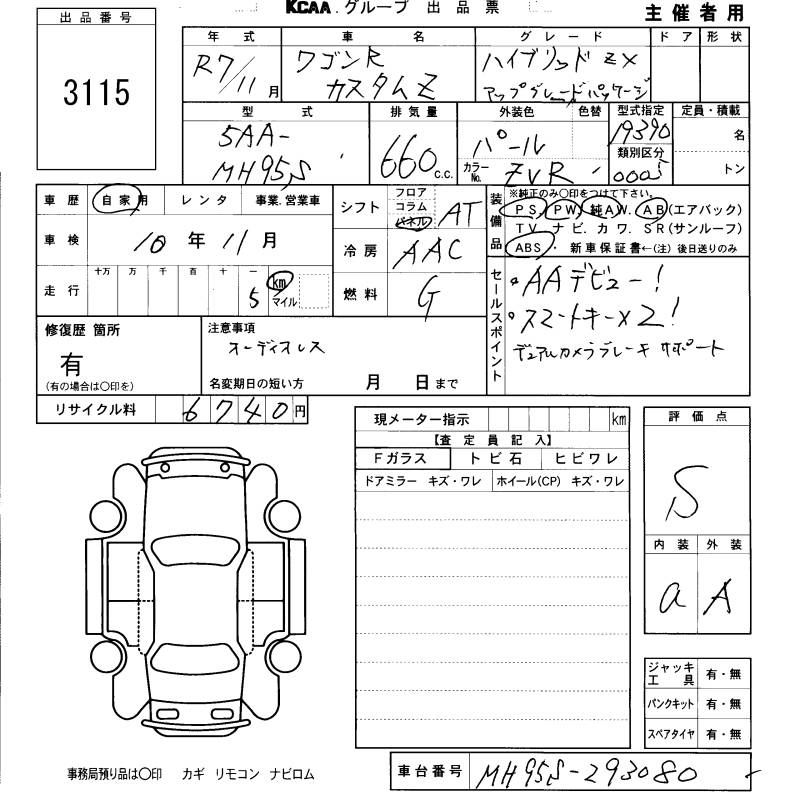 KCAA グループ 出品票
主催者用
出品番号
3115
年式 車名 グレード ドア 形状
R7/11月 ワゴンR カスタムZ ハイブリッド ZX アップグレードパッケージ
型式 排気量 外装色 色替 型式指定 定員・積載
5AA-MH95S 660 c.c. パール カラーNo. ZVR 19390 名
類別区分 0005 トン
車歴 自家用 レンタ 事業.営業車
シフト フロア コラム パネル AT
車検 10年11月
冷房 AAC
走行 十万 万 千 百 十 一 5 km マイル
燃料 G
装備品 ※純正のみ〇印をつけて下さい。
PS. PW. 純AW. AB(エアバック)
TV. ナビ. カワ. SR(サンルーフ)
ABS ・ 新車保証書←(注) 後日送りのみ
セールスポイント
・AAデビュー!
・スマートキー×2!
デュアルカメラブレーキサポート
修復歴 箇所
有
(有の場合は〇印を)
注意事項
オーディオレス
名変期日の短い方 月 日まで
リサイクル料 6740円
現メーター指示 km
【査定員記入】
Fガラス トビ石 ヒビワレ
ドアミラー キズ・ワレ ホイール(CP) キズ・ワレ
評価点
S
内装 外装
a A
ジャッキ工具 有・無
パンクキット 有・無
スペアタイヤ 有・無
事務局預り品は〇印 カギ リモコン ナビロム
車台番号 MH95S-293080